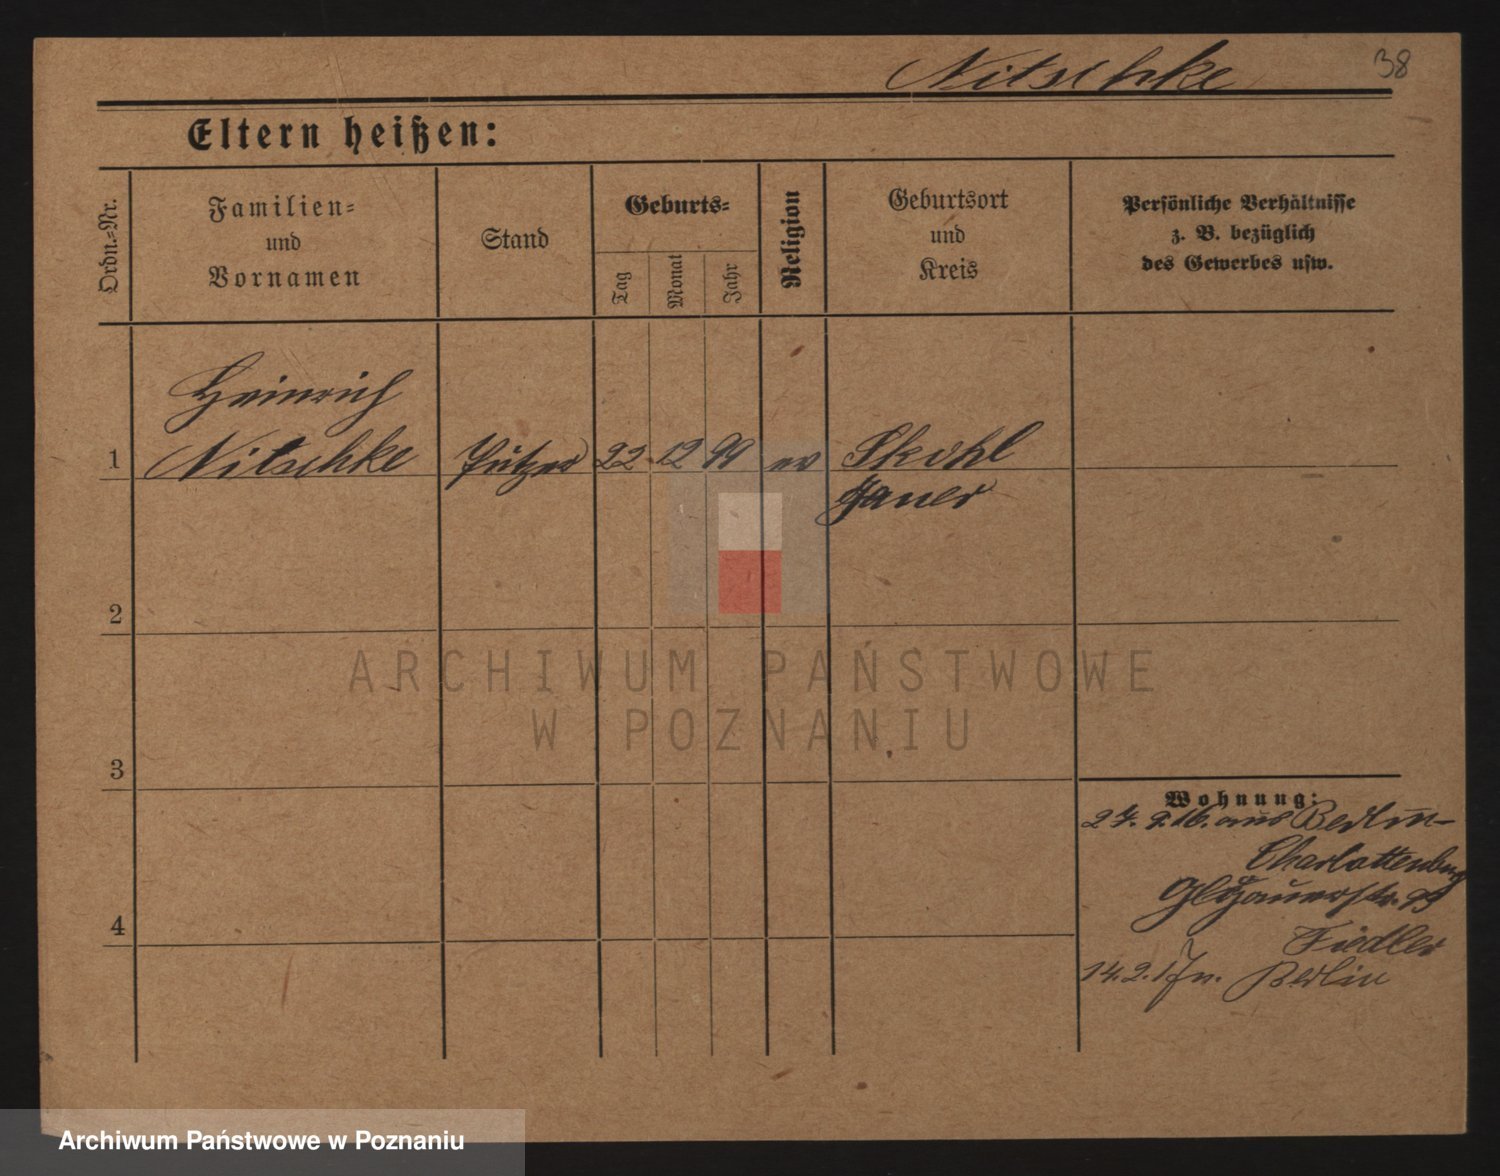 Nitschke 38
Eltern heißen:
Ordn.=Nr.
Familien=
und
Vornamen
Stand
Geburts=
Tag
Monat
Jahr
Religion
Geburtsort
und
Kreis
Persönliche Verhältnisse
z. B. bezüglich
des Gewerbes usw.
Heinrich
1 Nitschke Putzer 22 12 99 ev Skohl
Jauer
2
ARCHIWUM PAŃSTWOWE
W POZNANIU
3
Wohnung:
27. 9. 16. aus Berlin-
Charlottenburg
Fiedler
4
14. 2. 17 n. Berlin
Archiwum Państwowe w Poznaniu